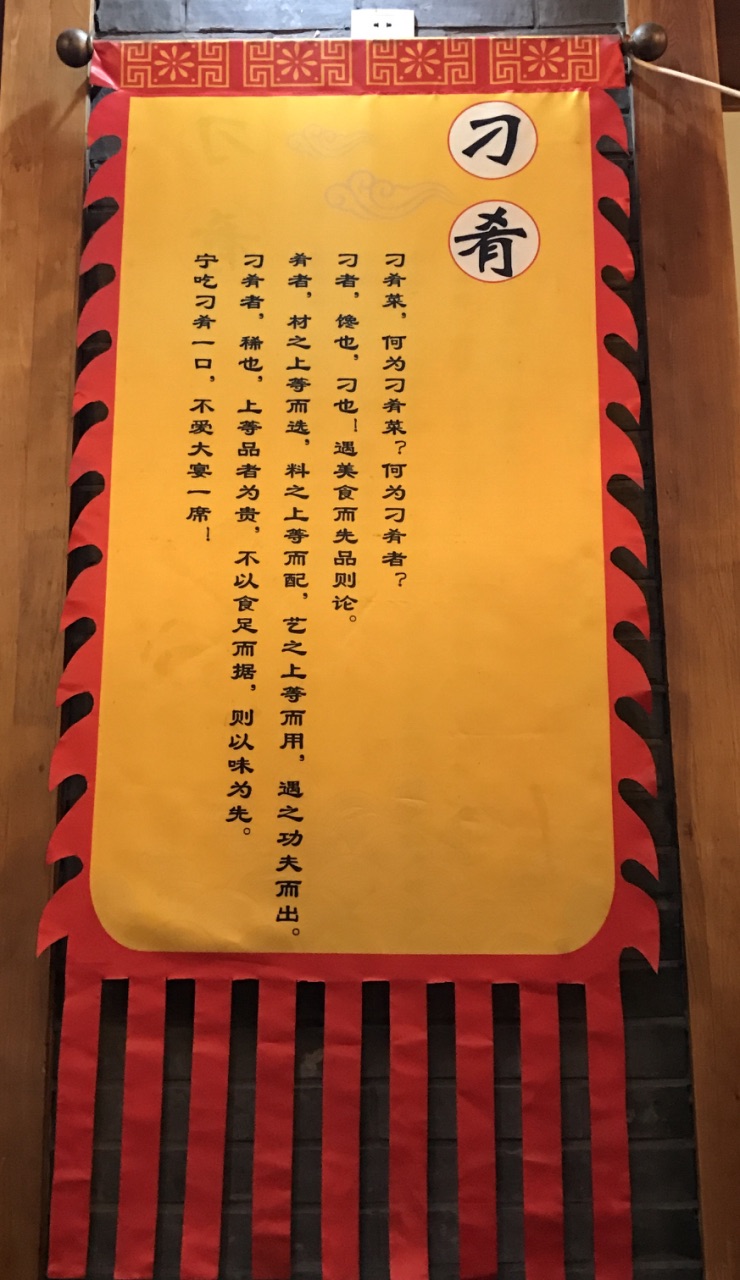 刁肴
刁肴菜，何为刁肴菜？何为刁肴者？
刁者，馋也，刁也！遇美食而先品则论。
肴者，材之上等而选，料之上等而配，艺之上等而用，遇之功夫而出。
刁肴者，稀也，上等品者为贵，不以食足而据，则以味为先。
宁吃刁肴一口，不爱大宴一席！